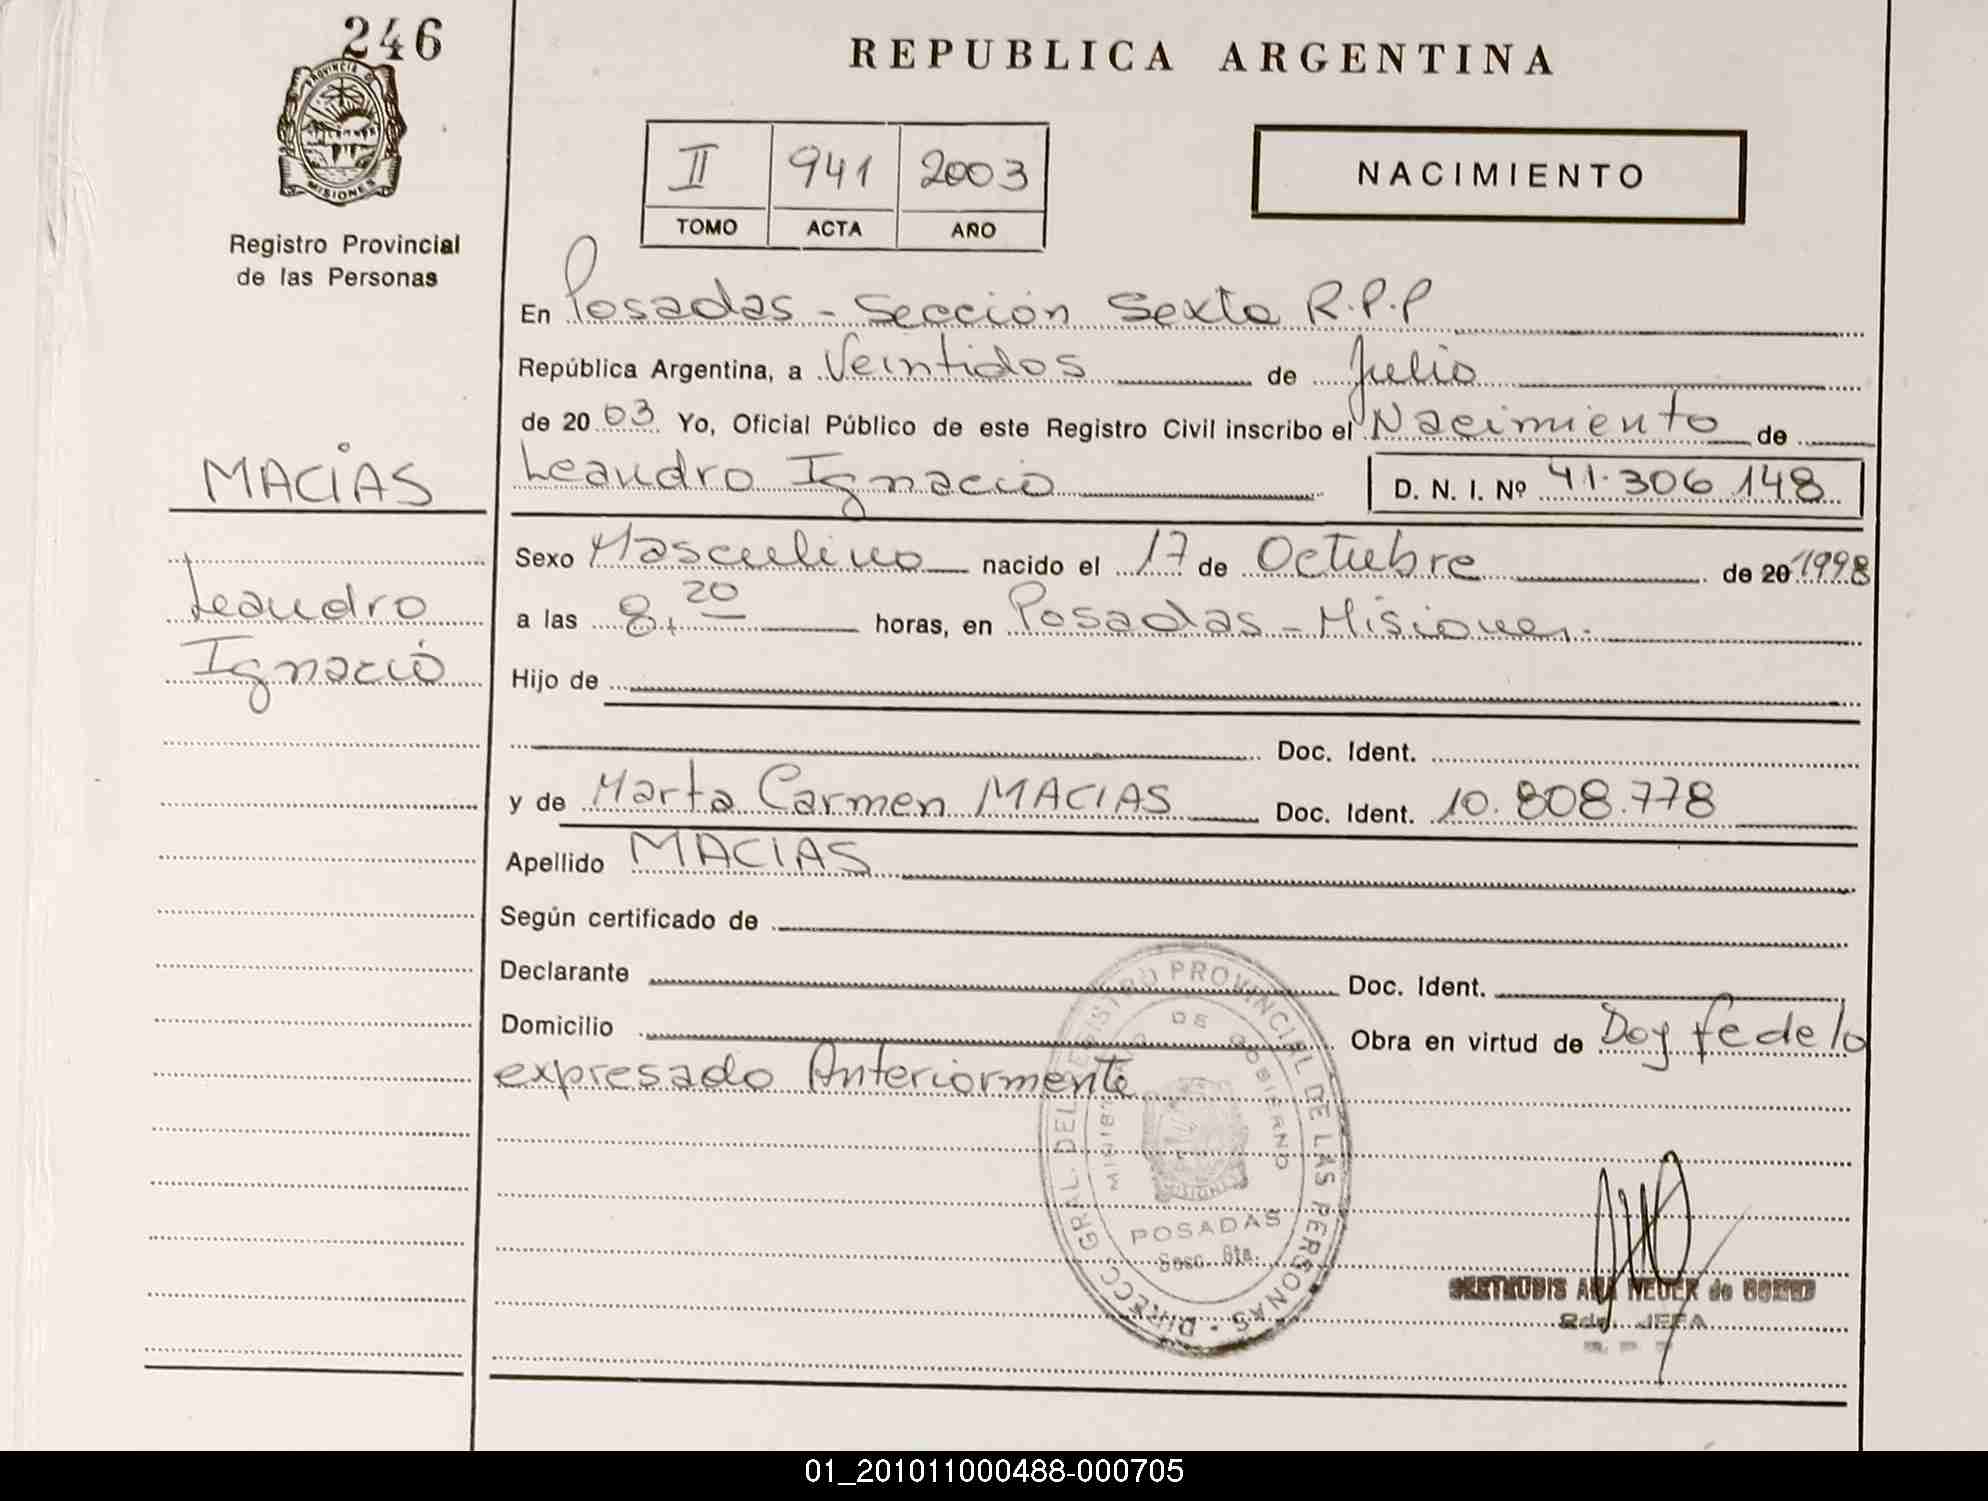 246
PROVINCIA DE
MISIONES
Registro Provincial
de las Personas
REPUBLICA ARGENTINA
II 941 2003
TOMO ACTA AÑO
NACIMIENTO
En Posadas - Sección Sexta R.P.P
República Argentina, a Veintidos de Julio
de 20 03 Yo, Oficial Público de este Registro Civil inscribo el Nacimiento de
MACÍAS
Leandro Ignacio D. N. I. Nº 41.306.148
Sexo Masculino nacido el 17 de Octubre de 20 1998
Leandro
a las 8,20 horas, en Posadas - Misiones.
Ignacio
Hijo de
Doc. Ident.
y de Marta Carmen MACIAS Doc. Ident. 10.808.778
Apellido MACIAS
Según certificado de
Declarante Doc. Ident.
Domicilio Obra en virtud de Doy fe de lo
expresado Anteriormente
DIRECC. GRAL. DEL REGISTRO PROVINCIAL DE LAS PERSONAS
MINISTERIO DE GOBIERNO
MISIONES
POSADAS
Secc. 6ta.
ANA NEUER de
JEFA
01_201011000488-000705